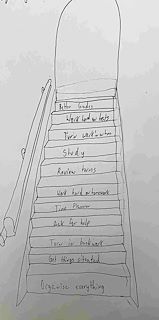 Better Grades
Work hard on tests
Turn work in on time
Study
Review notes
Work hard on homework
Time Planner
Ask for help
Turn in good work
Get things
Organize everything